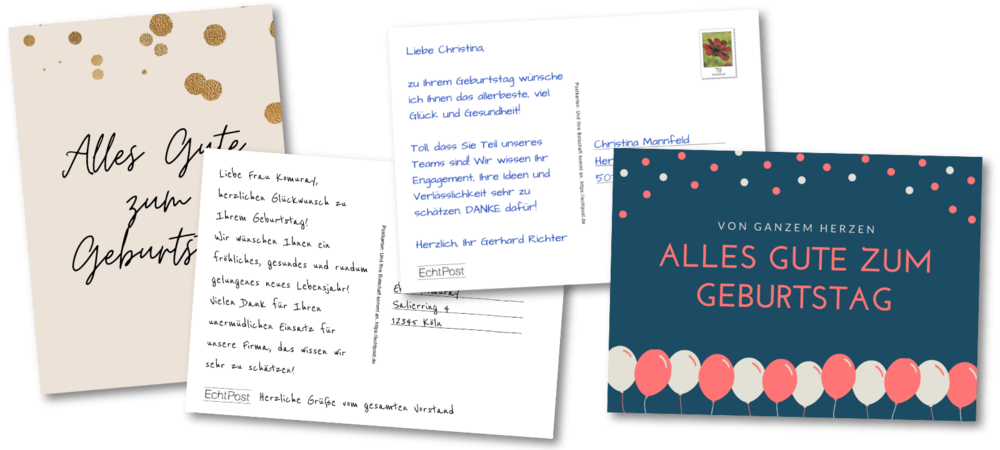 Alles Gute
zum
Liebe Frau Komuray,
herzlichen Glückwunsch zu
Ihrem Geburtstag!
Wir wünschen Ihnen ein
fröhliches, gesundes und rundum
gelungenes neues Lebensjahr!
Vielen Dank für Ihren
unermüdlichen Einsatz für
unsere Firma, das wissen wir
sehr zu schätzen!
EchtPost
Herzliche Grüße vom gesamten Vorstand
Postkarten: Und Ihre Botschaft kommt an. https://echtpost.de
Salierring 4
12345 Köln
Liebe Christina,
zu Ihrem Geburtstag wünsche
ich Ihnen das allerbeste, viel
Glück und Gesundheit!
Toll, dass Sie Teil unseres
Teams sind! Wir wissen Ihr
Engagement, Ihre Ideen und
Verlässlichkeit sehr zu
schätzen. DANKE dafür!
Herzlich, Ihr Gerhard Richter
EchtPost
Postkarten: Und Ihre Botschaft kommt an. https://echtpost.de
70
Christina Mannfeld
VON GANZEM HERZEN
ALLES GUTE ZUM
GEBURTSTAG